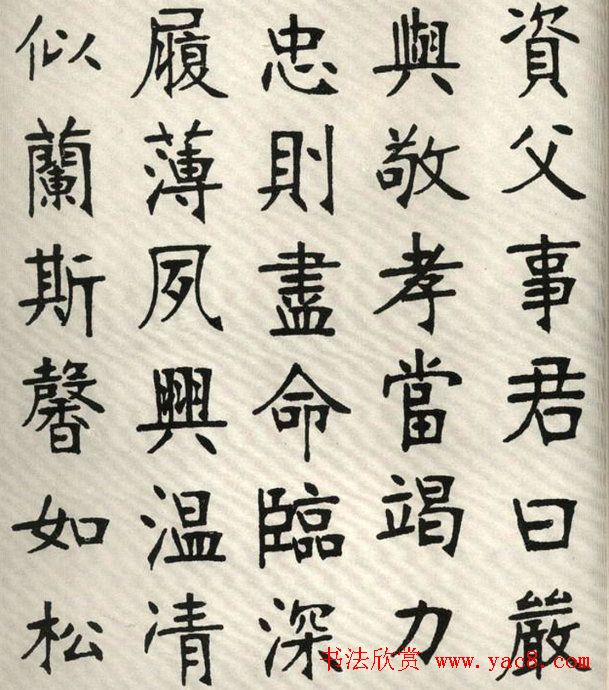 資父事君曰嚴
與敬孝當竭力
忠則盡命臨深
履薄夙興温凊
似蘭斯馨如松
书法欣赏 www.yac8.com